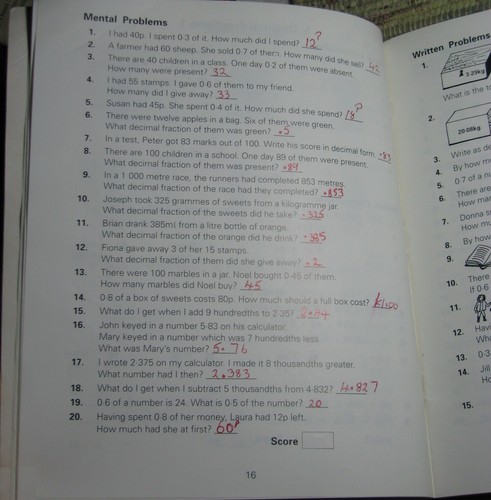 Mental Problems
1. I had 40p. I spent 0·3 of it. How much did I spend? 12p
2. A farmer had 60 sheep. She sold 0·7 of them. How many did she sell? 42
3. There are 40 children in a class. One day 0·2 of them were absent.
How many were present? 32
4. I had 55 stamps. I gave 0·6 of them to my friend.
How many did I give away? 33
5. Susan had 45p. She spent 0·4 of it. How much did she spend? 18p
6. There were twelve apples in a bag. Six of them were green.
What decimal fraction of them was green? ·5
7. In a test, Peter got 83 marks out of 100. Write his score in decimal form. ·83
8. There are 100 children in a school. One day 89 of them were present.
What decimal fraction of them was present? ·89
9. In a 1 000 metre race, the runners had completed 853 metres.
What decimal fraction of the race had they completed? ·853
10. Joseph took 325 grammes of sweets from a kilogramme jar.
What decimal fraction of the sweets did he take? ·325
11. Brian drank 385ml from a litre bottle of orange.
What decimal fraction of the orange did he drink? ·385
12. Fiona gave away 3 of her 15 stamps.
What decimal fraction of them did she give away? ·2
13. There were 100 marbles in a jar. Noel bought 0·45 of them.
How many marbles did Noel buy? 45
14. 0·8 of a box of sweets costs 80p. How much should a full box cost? £1.00
15. What do I get when I add 9 hundredths to 2·35? 2.44
16. John keyed in a number 5·83 on his calculator.
Mary keyed in a number which was 7 hundredths less.
What was Mary's number? 5.76
17. I wrote 2·375 on my calculator. I made it 8 thousandths greater.
What number had I then? 2.383
18. What do I get when I subtract 5 thousandths from 4·832? 4.827
19. 0·6 of a number is 24. What is 0·5 of the number? 20
20. Having spent 0·8 of her money, Laura had 12p left.
How much had she at first? 60p
Score
16
Written Problems
1.
3·25kg
What is the
2.
20·08kg
3. Write as de
4. By how m
5. 0·7 of a nu
6. There are
How man
7. Donna s
How mu
8. By how
9.
10. There
If 0·6
11.
12. Hav
Wh
13. 0·3
14. Jill
Ho
15.